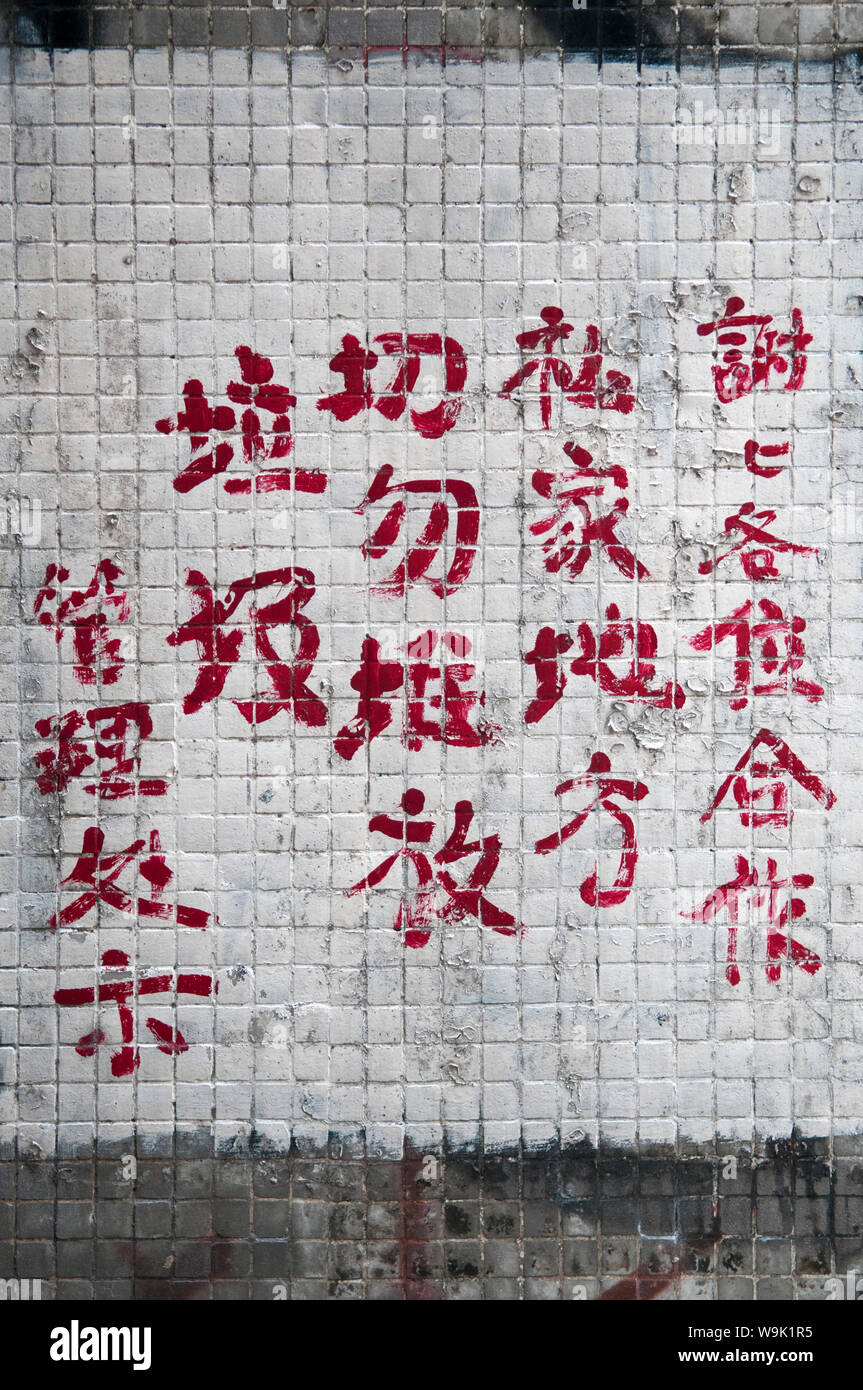 謝〻各位合作
私家地方
切勿堆放
垃圾
管理处示
alamy
Image ID: W9K1R5
www.alamy.com